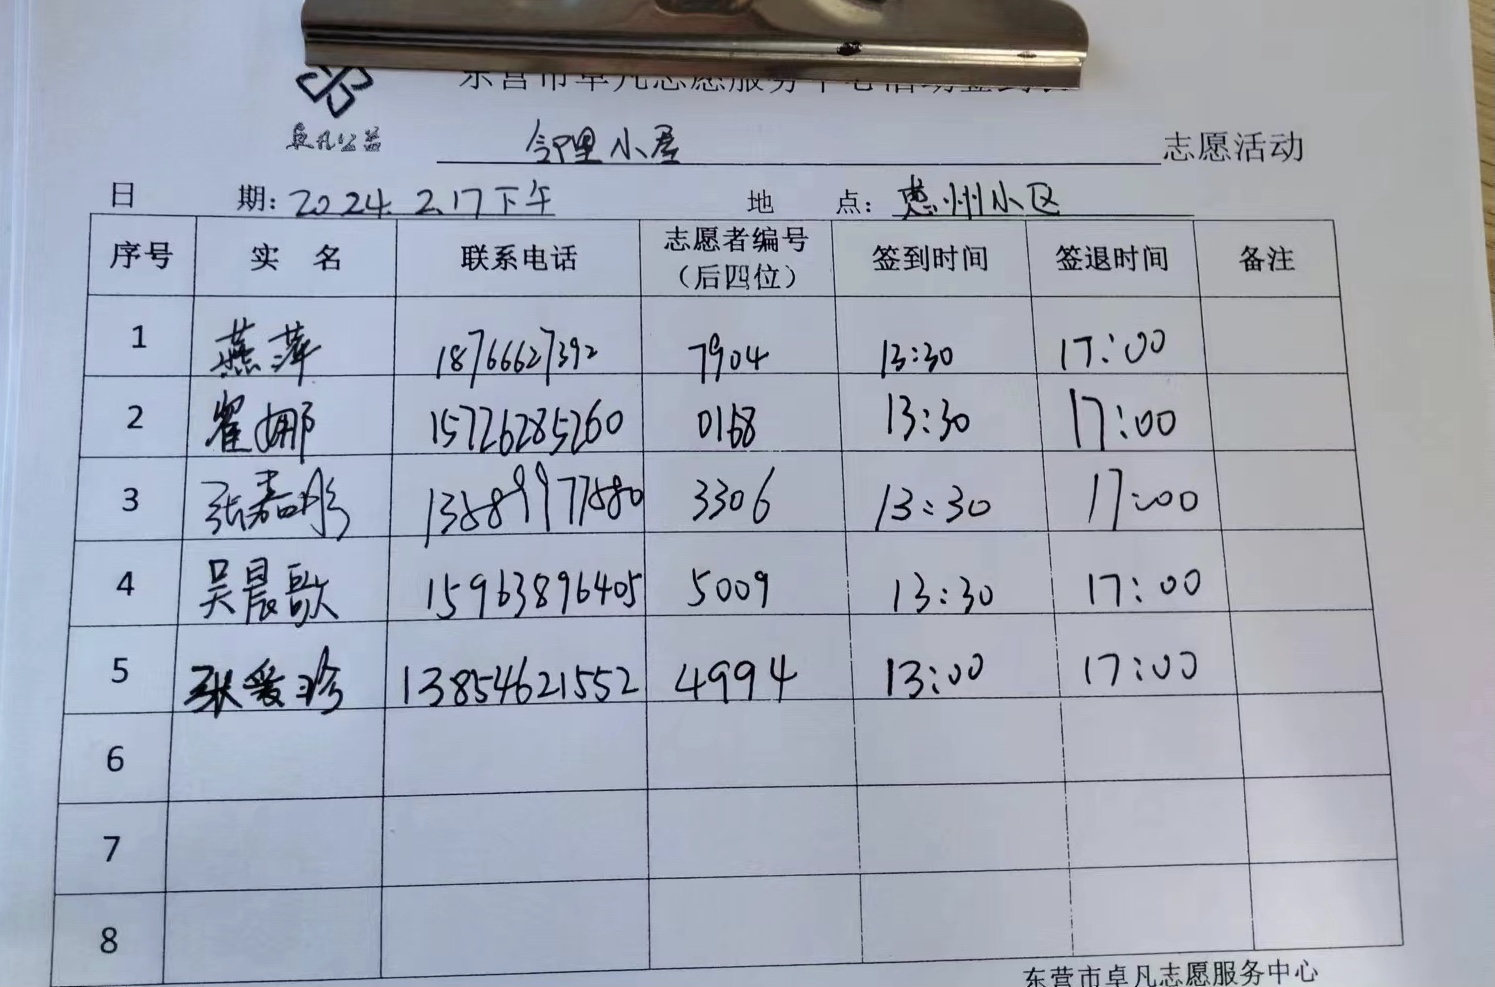 东营市卓凡志愿服务中心活动签到表
卓凡公益
邻里小屋 志愿活动
日 期: 2024.2.17下午 地 点: 惠州小区
序号 实 名 联系电话 志愿者编号（后四位） 签到时间 签退时间 备注
1 燕萍 18766627392 7904 13:30 17:00
2 翟娜 15726285260 0168 13:30 17:00
3 张嘉彤 13589977580 3306 13:30 17:00
4 吴晨歌 15963896405 5009 13:30 17:00
5 张爱珍 13854621552 4994 13:00 17:00
6
7
8
东营市卓凡志愿服务中心